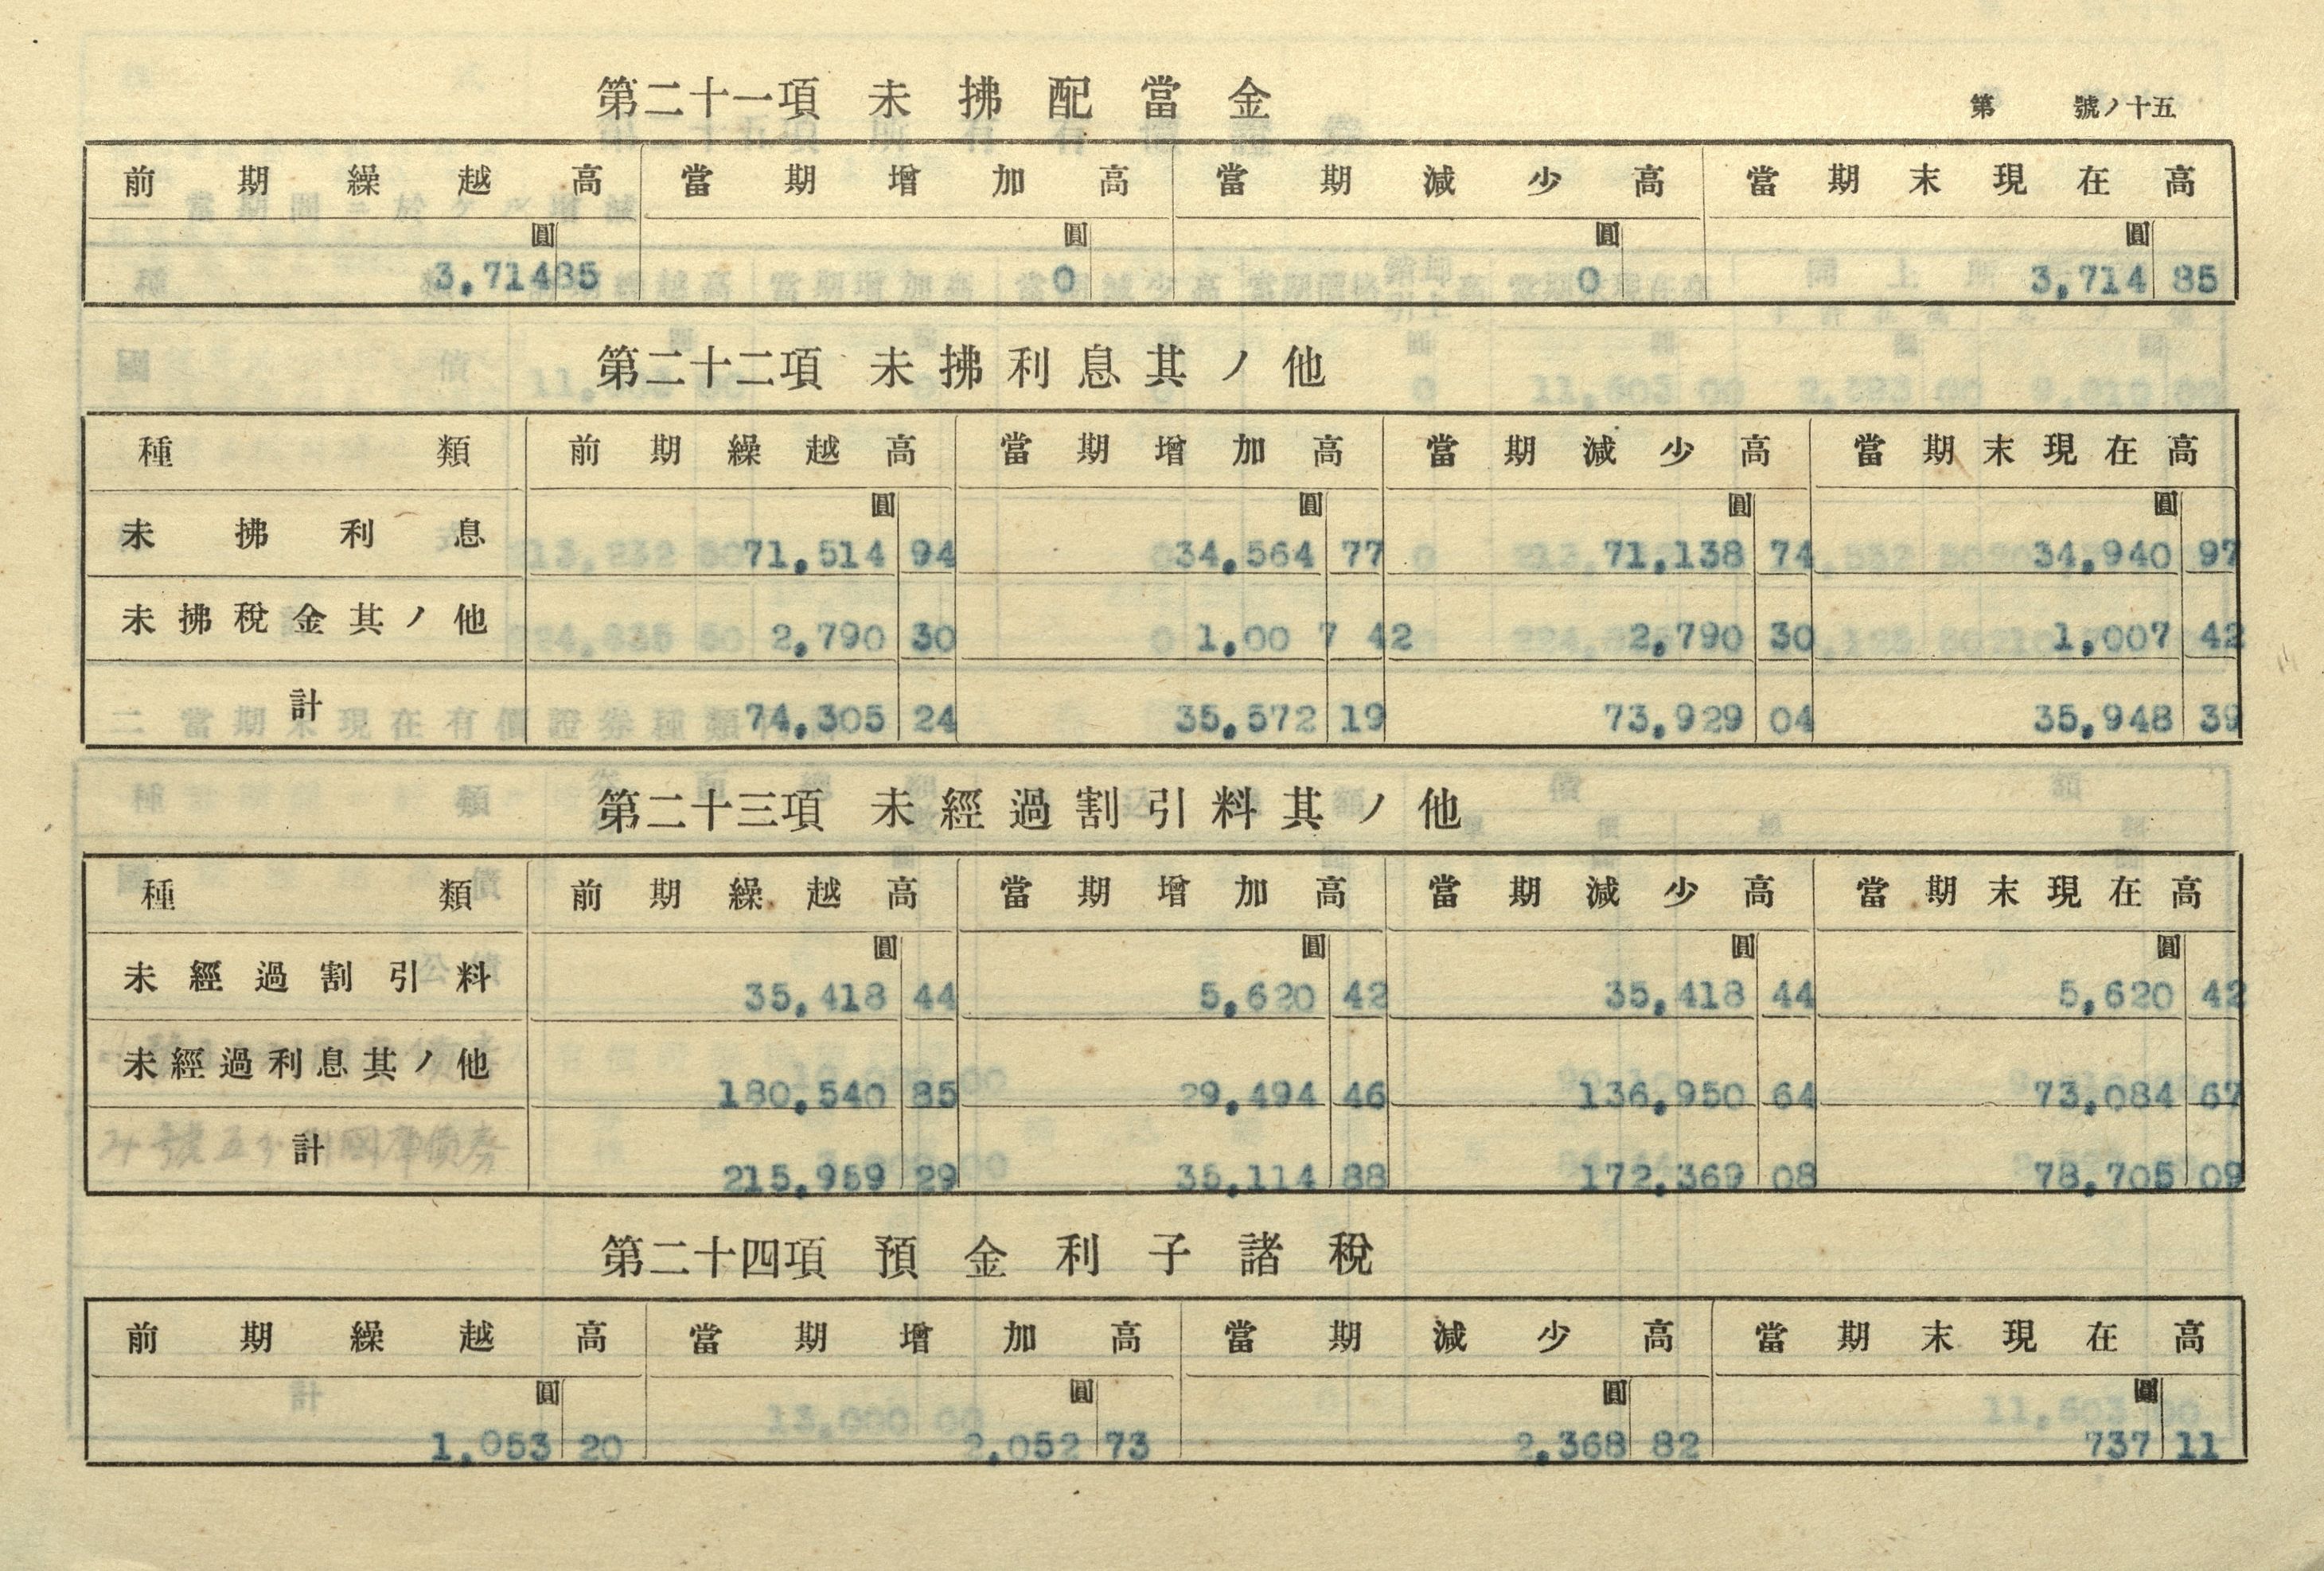 第二十一項 未拂配當金
第 號ノ十五
前期繰越高 當期增加高 當期減少高 當期末現在高
圓 圓 圓 圓
3,714 85 0 0 3,714 85
第二十二項 未拂利息其ノ他
種類 前期繰越高 當期增加高 當期減少高 當期末現在高
圓 圓 圓 圓
未拂利息 71,514 94 34,564 77 71,138 74 34,940 97
未拂稅金其ノ他 2,790 30 1,007 42 2,790 30 1,007 42
計 74,305 24 35,572 19 73,929 04 35,948 39
第二十三項 未經過割引料其ノ他
種類 前期繰越高 當期增加高 當期減少高 當期末現在高
圓 圓 圓 圓
未經過割引料 35,418 44 5,620 42 35,418 44 5,620 42
未經過利息其ノ他 180,540 85 29,494 46 136,950 64 73,084 67
計 215,959 29 35,114 88 172,369 08 78,705 09
第二十四項 預金利子諸稅
前期繰越高 當期增加高 當期減少高 當期末現在高
圓 圓 圓 圓
1,053 20 2,052 73 2,368 82 737 11